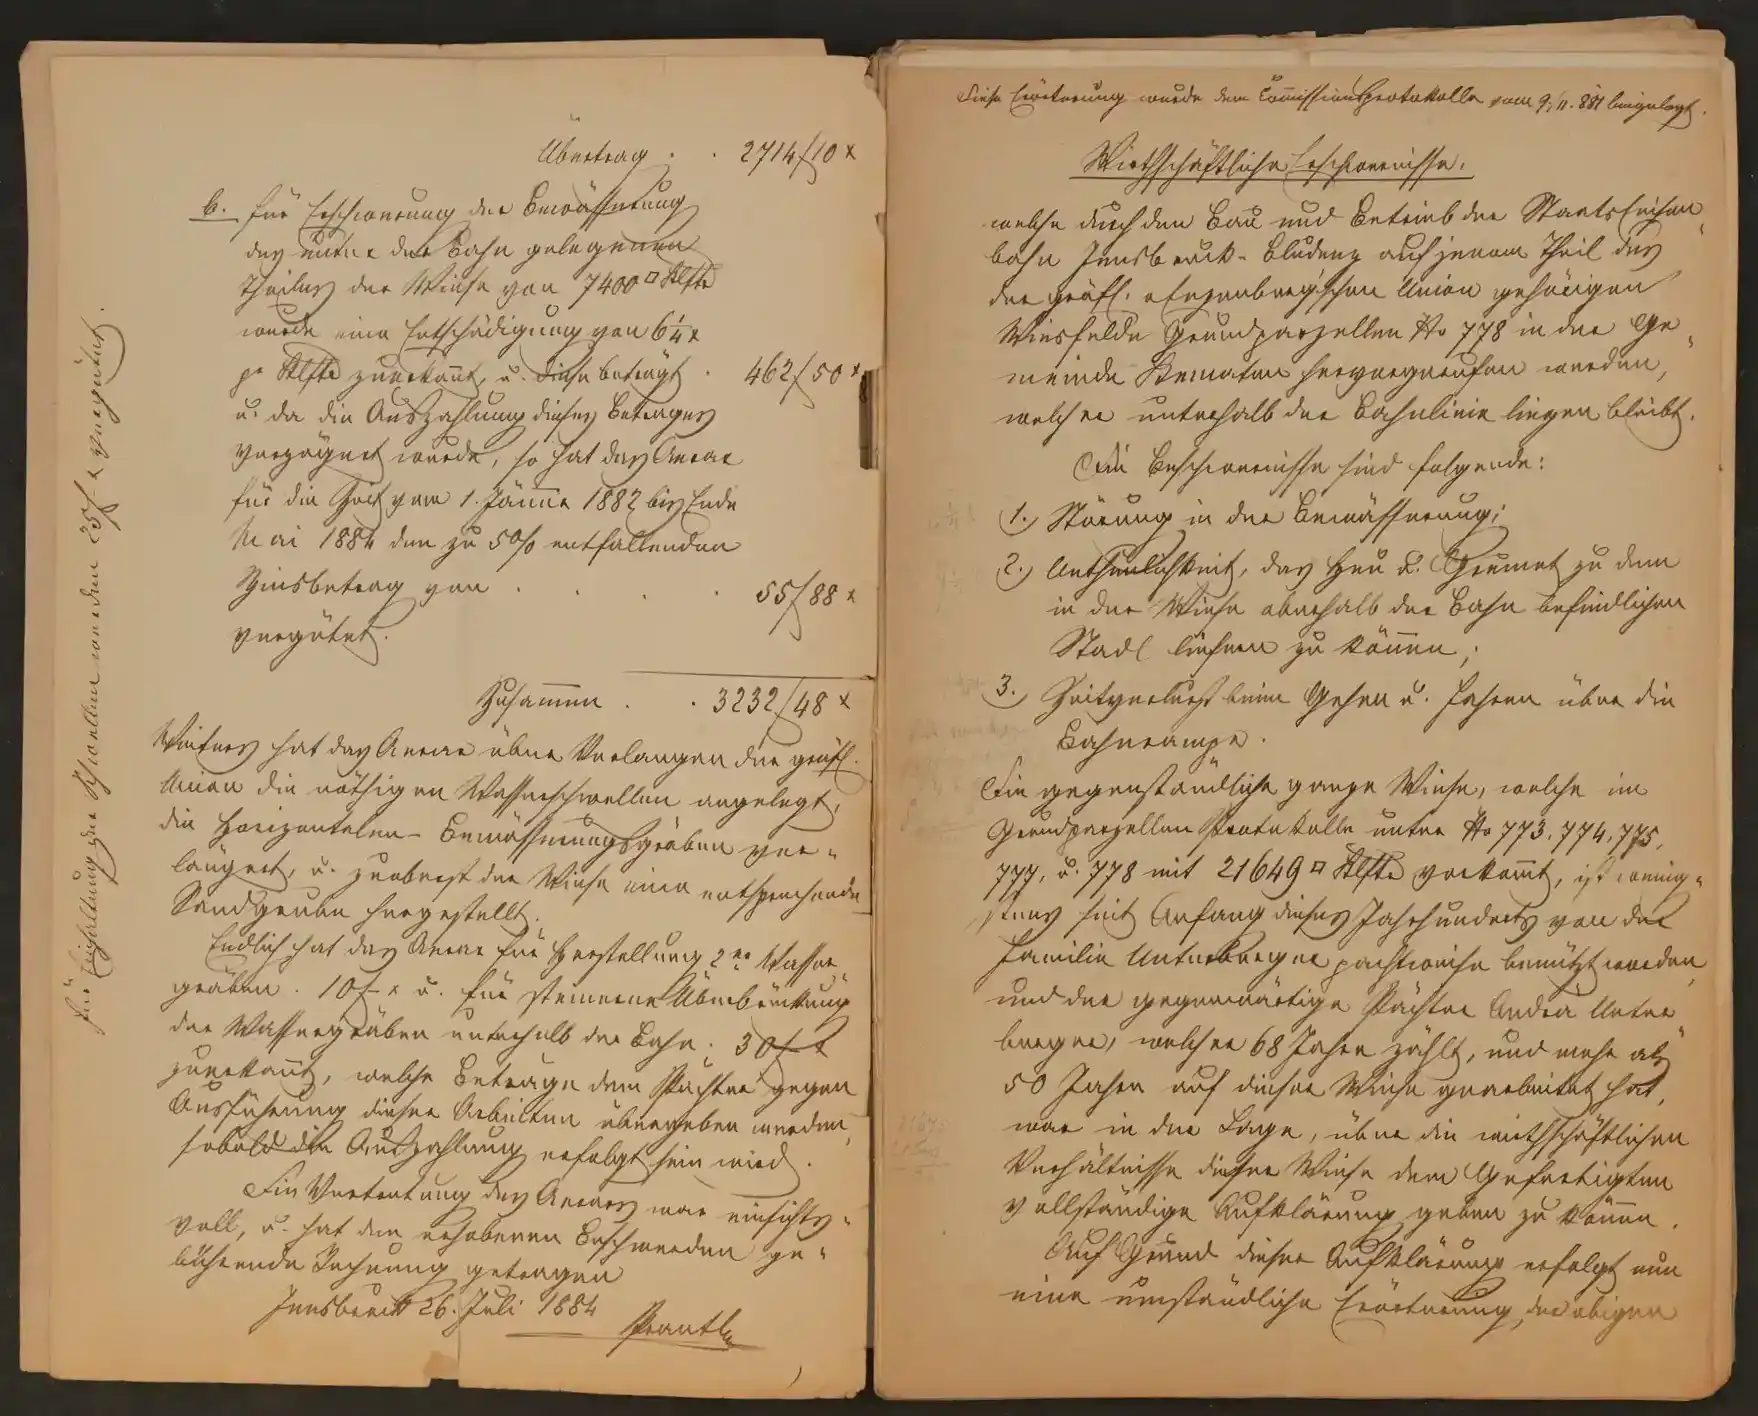 Übertrag . . 2714 f 10 x
b. für Erschwerung der Bewässerung
des unter der Bahn gelegenen
Theiles der Wiese von 7400 □ Klftr
wurde eine Entschädigung von 6 1/4 x
pr Klftr zuerkannt, u. diese beträgt . 462 f 50 x
u. da die Auszahlung dieses Betrages
verzögert wurde, so hat das Aerar
für die Zeit vom 1. Jänner 1882 bis Ende
Mai 1884 den zu 5% entfallenden
Zinsbetrag von . . . . 55 f 88 x
vergütet.
Zusammen . . 3232 f 48 x
Weiters hat das Aerar über Verlangen der gräfl.
Union die nöthigen Wasserschwellen angelegt,
die Horizontalen-Bewässerungsgräben ver„
längert, u. zuoberst der Wiese eine entsprechende
Sandgrube hergestellt.
Endlich hat das Aerar für Herstellung 2er Wasser„
gräben . 10 f – x u. für steinerne Überbrückung
der Wassergräben unterhalb der Bahn . 30 f – x
zuerkannt, welche Beträge dem Pächter gegen
Ausführung dieser Arbeiten übergeben werden,
sobald die Auszahlung erfolgt sein wird.
Die Vertretung des Aerars war einsichts„
voll, u. hat den erhobenen Beschwerden ge„
bührende Rechnung getragen
Innsbruck 26. Juli 1884
Prantl
Für Erhaltung der Schwellen werden 25 f – x vergütet.
Diese Erörterung wurde dem Commissionsprotokolle vom 9/11. 881 beigelegt.
Wirthschäftliche Erschwernisse.
welche durch den Bau und Betrieb der Staats Eisen„
bahn Innsbruck-Bludenz auf jenem Theil des
der gräfl. Enzenberg'schen Union gehörigen
Wiesfelde Grundparzellen No 778 in der Ge„
meinde Kematen hervorgerufen werden,
welcher unterhalb der Bahnlinie liegen bleibt.
Die Beschwernisse sind folgende:
1.) Störung in der Bewässerung;
2.) Unthunlichkeit, das Heu u. Grumet zu dem
in der Wiese oberhalb der Bahn befindlichen
Stadl liefern zu können;
3. Zeitverlust beim Gehen u. Fahren über die
Bahnrampe.
Die gegenständliche ganze Wiese, welche im
Grundparzellen Protokolle unter No 773, 774, 775,
777, u. 778 mit 21649 □ Klftr vorkommt, ist wenig„
stens seit Anfang dieses Jahrhunderts von der
Familie Unterberger pachtweise benützt worden,
und der gegenwärtige Pächter Andrä Unter„
berger, welcher 68 Jahre zählt, und mehr als
50 Jahre auf dieser Wiese gearbeitet hat,
war in der Lage, über die wirthschäftlichen
Verhältnisse dieser Wiese dem Gefertigten
vollständige Aufklärung geben zu können.
Auf Grund dieser Aufklärung erfolgt nun
eine umständliche Erörterung der obigen